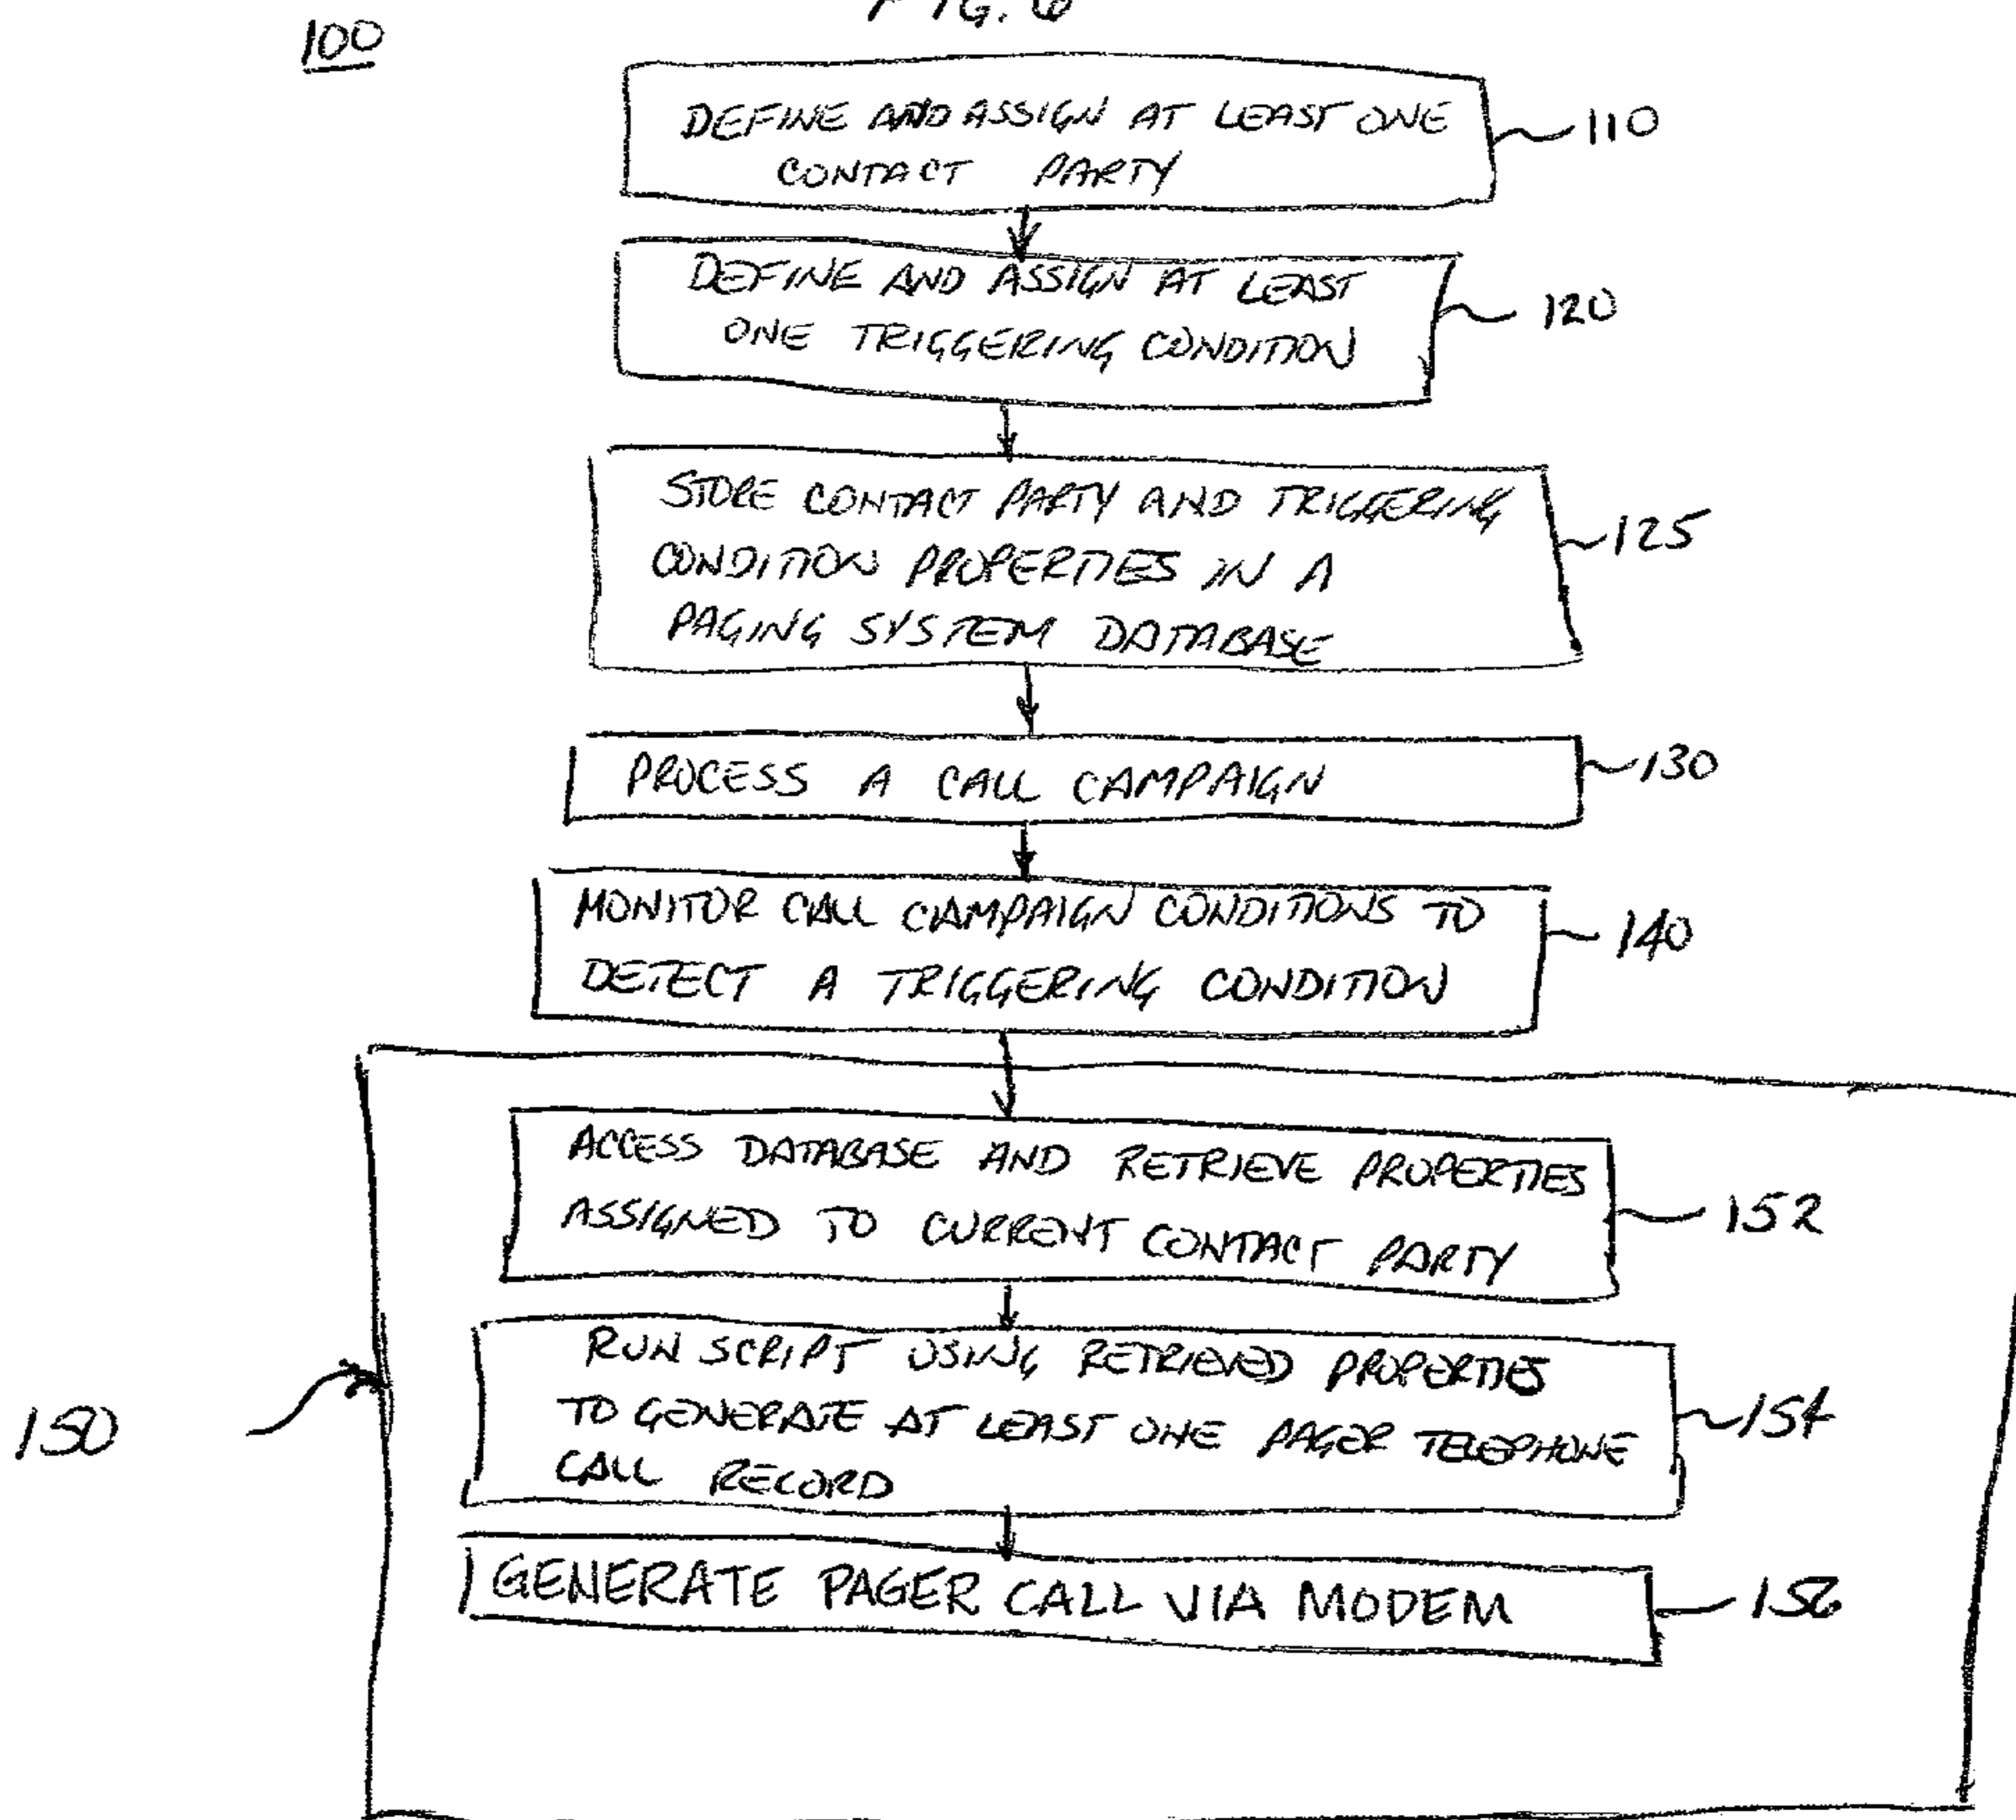 FIG. 6
100
DEFINE AND ASSIGN AT LEAST ONE
CONTACT PARTY
110
DEFINE AND ASSIGN AT LEAST
ONE TRIGGERING CONDITION
120
STORE CONTACT PARTY AND TRIGGERING
CONDITION PROPERTIES IN A
PAGING SYSTEM DATABASE
125
PROCESS A CALL CAMPAIGN
130
MONITOR CALL CAMPAIGN CONDITIONS TO
DETECT A TRIGGERING CONDITION
140
ACCESS DATABASE AND RETRIEVE PROPERTIES
ASSIGNED TO CURRENT CONTACT PARTY
152
RUN SCRIPT USING RETRIEVED PROPERTIES
TO GENERATE AT LEAST ONE PAGER TELEPHONE
CALL RECORD
154
150
GENERATE PAGER CALL VIA MODEM
156